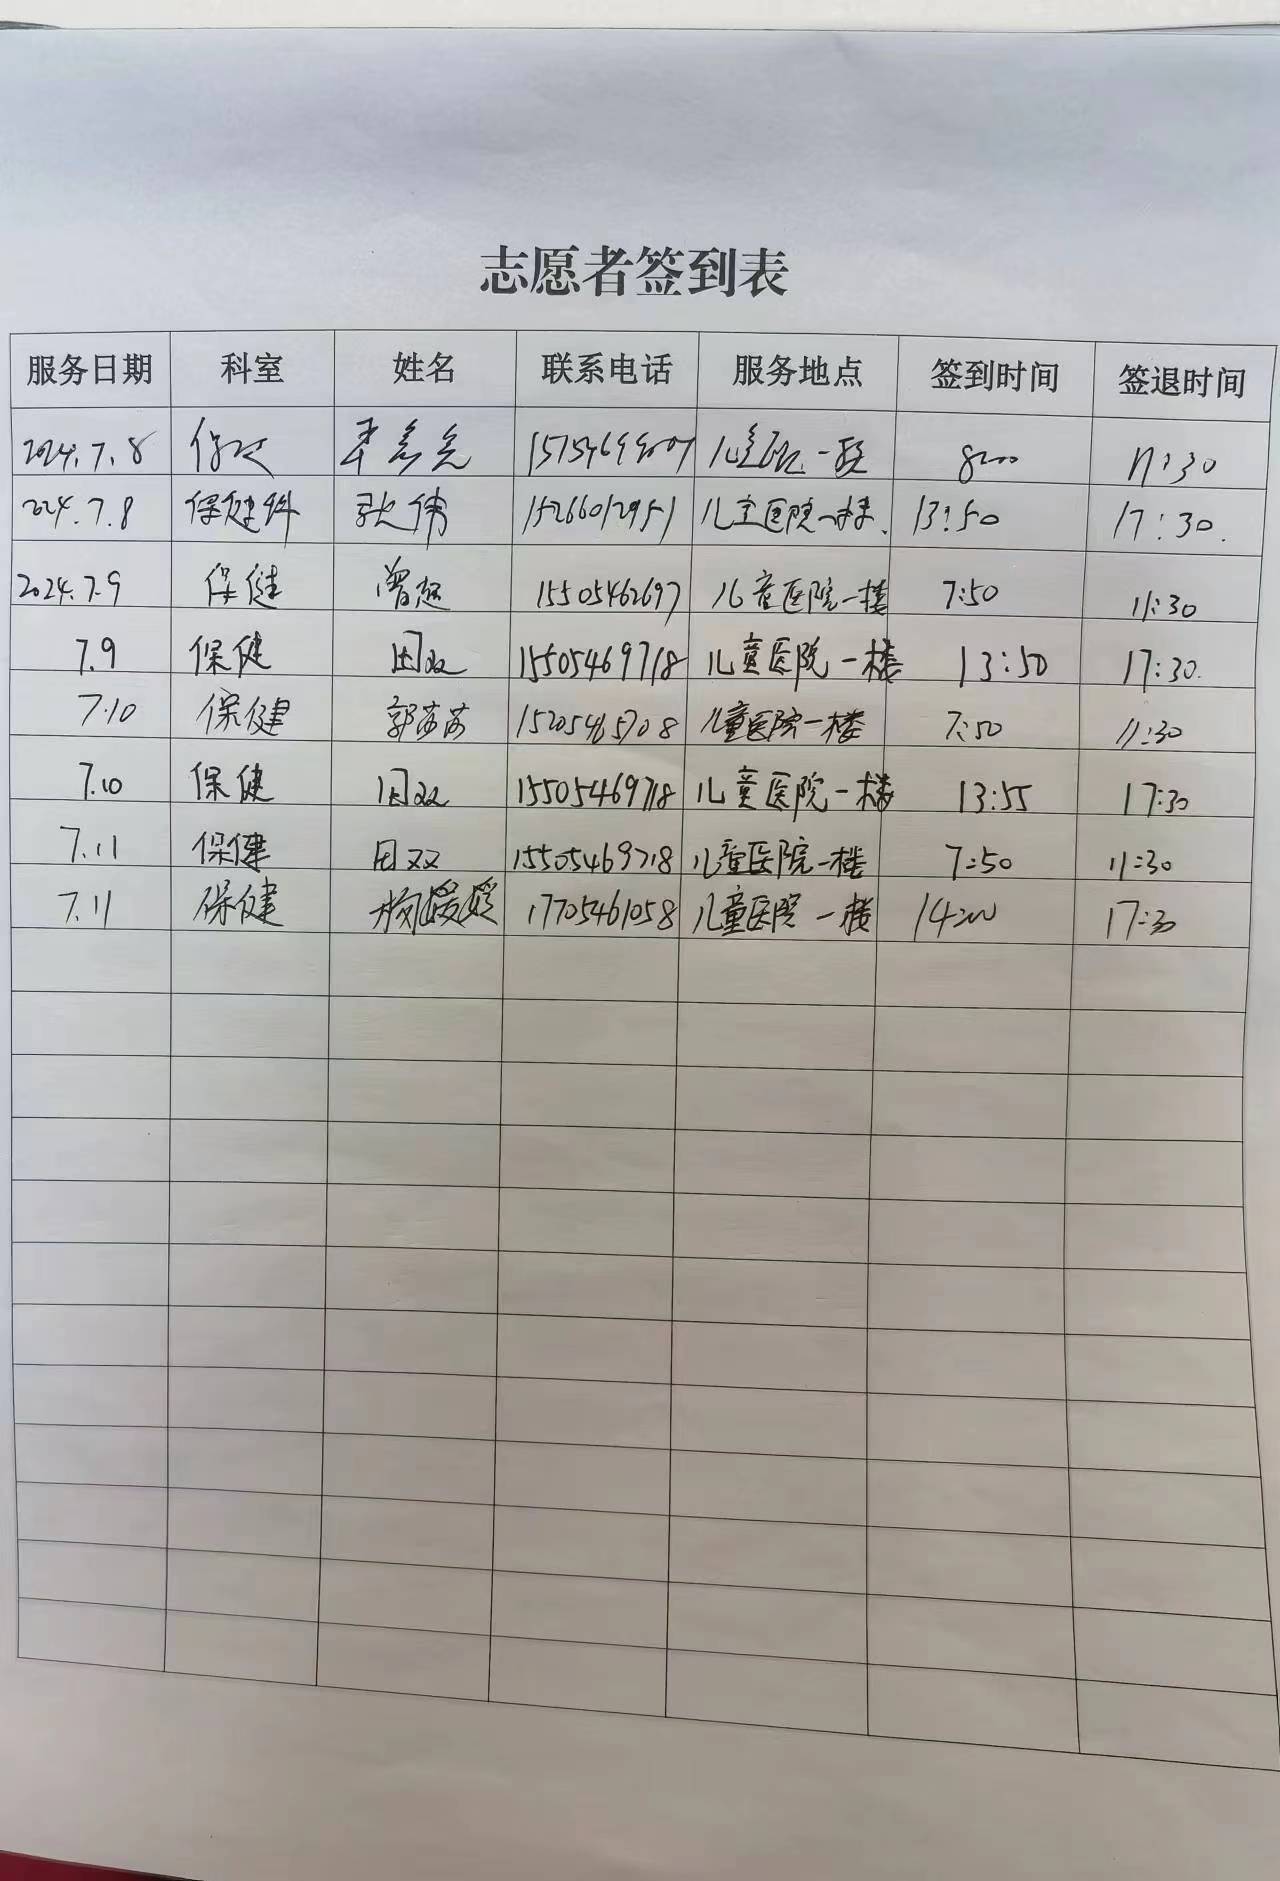 志愿者签到表
服务日期 科室 姓名 联系电话 服务地点 签到时间 签退时间
2024.7.8 儿童医院一楼 8:00 11:30
2024.7.8 保健科 张伟 15266012951 儿童医院一楼. 13:50 17:30.
2024.7.9 保健 15505462697 儿童医院一楼 7:50 11:30
7.9 保健 田双 15505469718 儿童医院一楼 13:50 17:30.
7.10 保健 郭莎莎 15205465708 儿童医院一楼 7:50 11:30
7.10 保健 田双 15505469718 儿童医院一楼 13:55 17:30
7.11 保健 田双 15505469718 儿童医院一楼 7:50 11:30
7.11 保健 杨媛媛 17705461058 儿童医院一楼 14:00 17:30